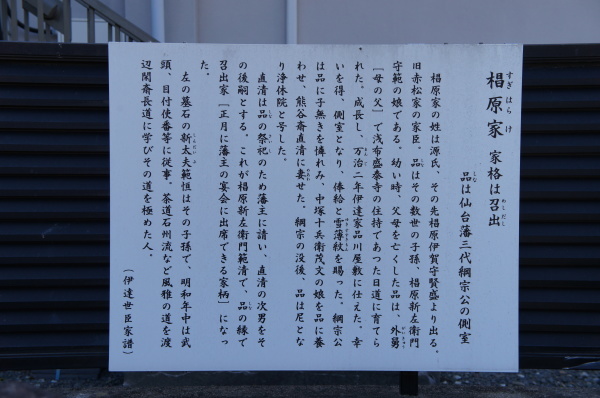 椙原家 家格は召出
すぎはらけ めしだし
品は仙台藩三代綱宗公の側室
しな
椙原家の姓は源氏、その先椙原伊賀守賢盛より出る。
旧赤松家の家臣。品はその数世の子孫、椙原新左衛門
守範の娘である。幼い時、父母を亡くした品は、外舅
[母の父]で浅布盛泰寺の住持であった日道に育てら
れた。成長し、万治二年伊達家品川屋敷に仕えた。幸
いを得、側室となり、俸給と雪薄紋を賜った。綱宗公
は品に子無きを憐れみ、中塚十兵衛茂文の娘を品に養
わせ、熊谷斎直清に妻せた。綱宗の没後、品は尼とな
り浄休院と号した。
直清は品の祭祀のため藩主に請い、直清の次男をそ
の後嗣とする。これが椙原新左衛門範清で、品の縁で
召出家[正月に藩主の宴会に出席できる家柄]になっ
た。
左の墓石の新太夫範恒はその子孫で、明和年中は武
頭、目付使番等に従事。茶道石州流など風雅の道を渡
辺閑斎長道に学びその道を極めた人。
(伊達世臣家譜)